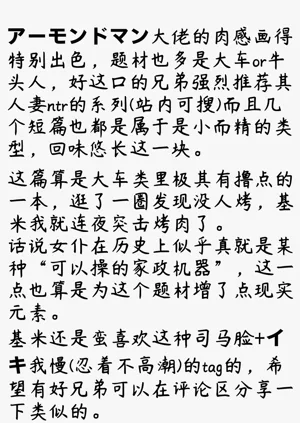 アーモンドマン大佬的肉感画得
特别出色，题材也多是大车or牛
头人，好这口的兄弟强烈推荐其
人妻ntr的系列(站内可搜)而且几
个短篇也都是属于是小而精的类
型，回味悠长这一块。
这篇算是大车类里极其有撸点的
一本，逛了一圈发现没人烤，基
米我就连夜突击烤肉了。
话说女仆在历史上似乎真就是某
种“可以操的家政机器”，这一
点也算是为这个题材增了点现实
元素。
基米还是蛮喜欢这种司马脸+イ
キ我慢(忍着不高潮)的tag的，希
望有好兄弟可以在评论区分享一
下类似的。